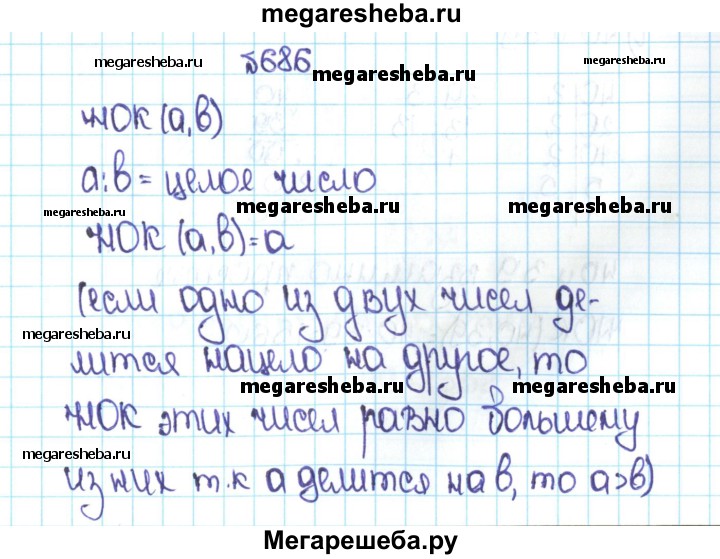 megaresheba.ru
megaresheba.ru №686 megaresheba.ru
megaresheba.ru
НОК (а,в)
а:в = целое число
megaresheba.ru megaresheba.ru megaresheba.ru
НОК (а,в)=а
(если одно из двух чисел де-
megaresheba.ru
лится нацело на другое, то
megaresheba.ru megaresheba.ru
НОК этих чисел равно большему
megaresheba.ru
из них т.к а делится на в, то а>в)
Мегарешеба.ру